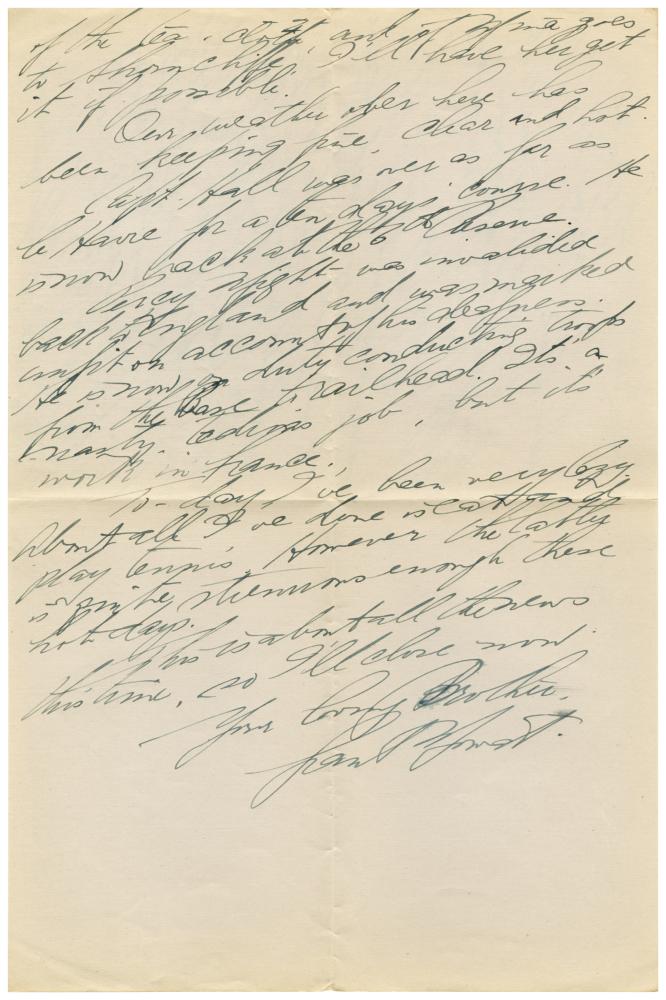 of the tea-cloth, and if Erma goes
to Shorncliffe, I'll have her get
it if possible.
Our weather over here has
been keeping fine, clear and hot.
Capt. Hall was over as far as
le Havre for a ten days course. He
is now back at the Reserve.
Percy was invalided
back to England and was marked
unfit on account of his deafness.
He is now on duty conducting troops
from the Base to railhead. Its a
nasty, tedious job, but it's
work in France.
To-day, I've been very lazy.
About all I've done is eat and
play tennis. However the latter
is quite strenuous enough these
hot days.
This is about all the news
this time, so I'll close now.
Your loving Brother.